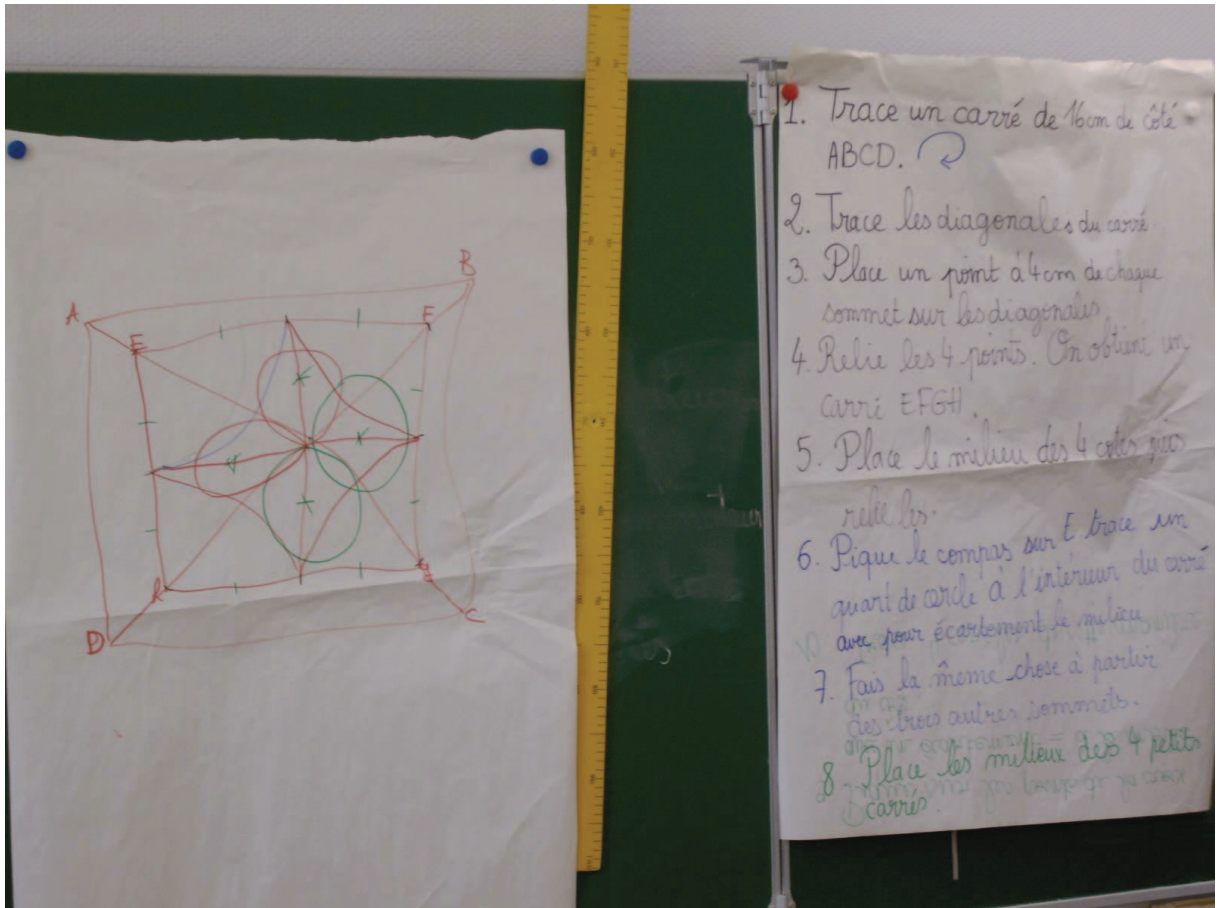 A
B
E
F
D
C
L
1. Trace un carré de 16cm de côté
ABCD.
2. Trace les diagonales du carré.
3. Place un point à 4cm de chaque
sommet sur les diagonales.
4. Relie les 4 points. On obtient un
carré EFGH.
5. Place le milieu des 4 cotés puis
relie les.
6. Pique le compas sur E trace un
quart de cercle à l'intérieur du carré
avec pour écartement le milieu
7. Fais la même chose à partir
des trois autres sommets.
8 Place les milieux des 4 petits
carrés.